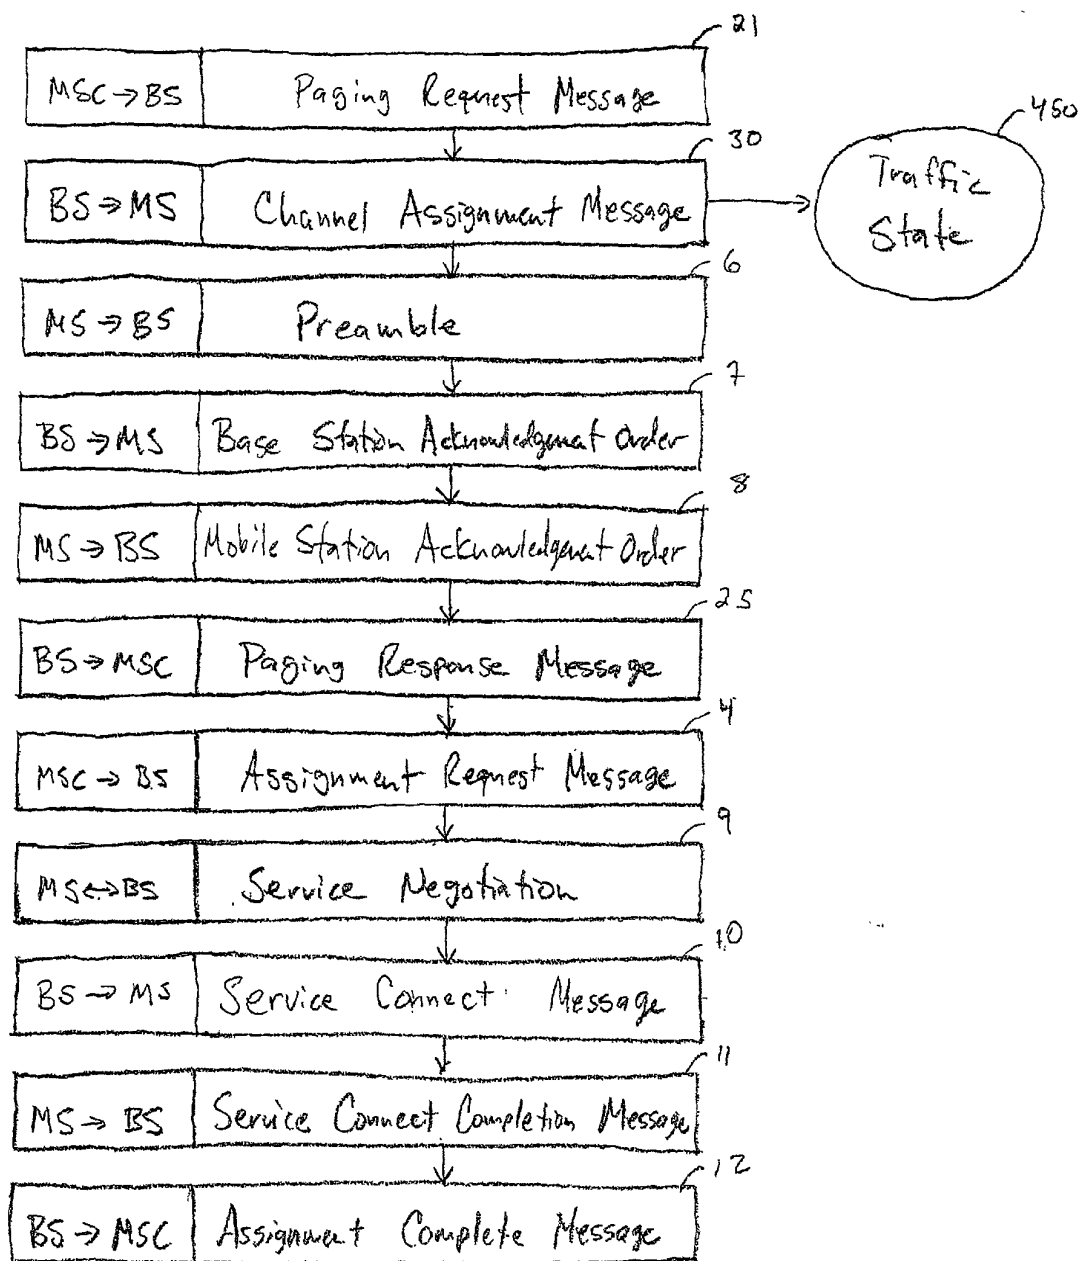 21
MSC→BS Paging Request Message
30
BS→MS Channel Assignment Message
450
Traffic
State
6
MS→BS Preamble
7
BS→MS Base Station Acknowledgment Order
8
MS→BS Mobile Station Acknowledgment Order
25
BS→MSC Paging Response Message
4
MSC→BS Assignment Request Message
9
MS↔BS Service Negotiation
10
BS→MS Service Connect Message
11
MS→BS Service Connect Completion Message
12
BS→MSC Assignment Complete Message